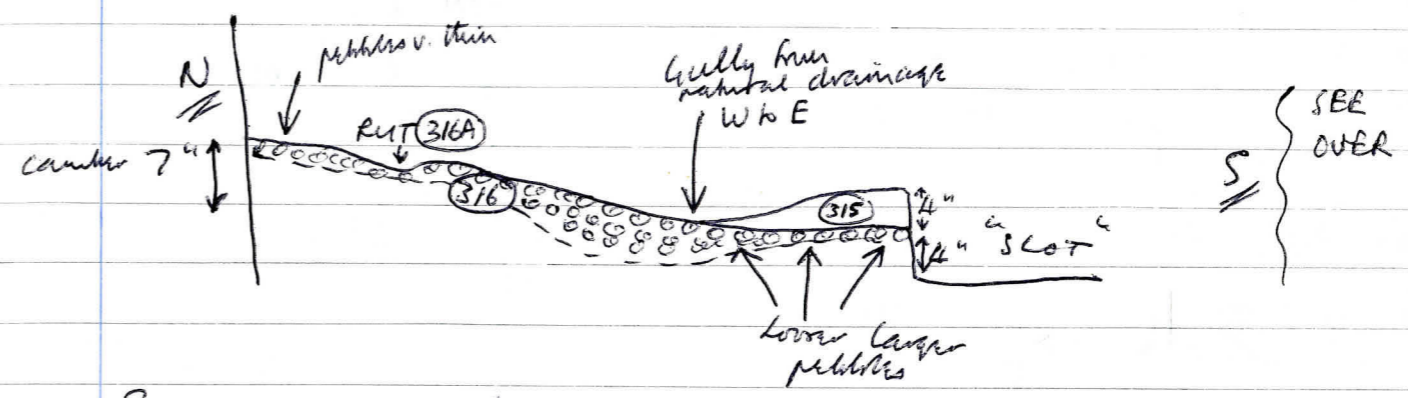 N
pebbles v. thin
camber 7"
RUT 316A
316
Gully from
natural drainage
W to E
315
4"
4" "SLOT"
Looser larger
pebbles
S
SEE
OVER